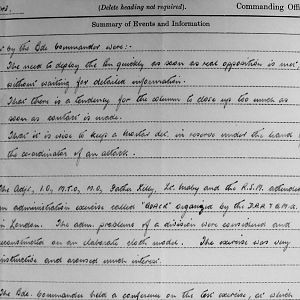 (Delete heading not required).
Commanding Offi
Summary of Events and Information
by the Bde. Commander were:-
The need to deploy the bn quickly as soon as real opposition is met
without waiting for detailed information.
That there is a tendency for the column to close up too much as
soon as contact is made.
That it is wise to keep a mortar det. in reserve under the hand of
the co-ordinator of an attack.
The Adjt, I.O., M.T.O., M.O., Father Kelly, Lt. and the R.S.M. attended
an administration exercise called organized by the
in London. The adm. problems of a division were considered and
demonstrated on an elaborate cloth model. The exercise was very
instructive and aroused much interest.
The Bde. Commander held a conference on the test exercise, at which